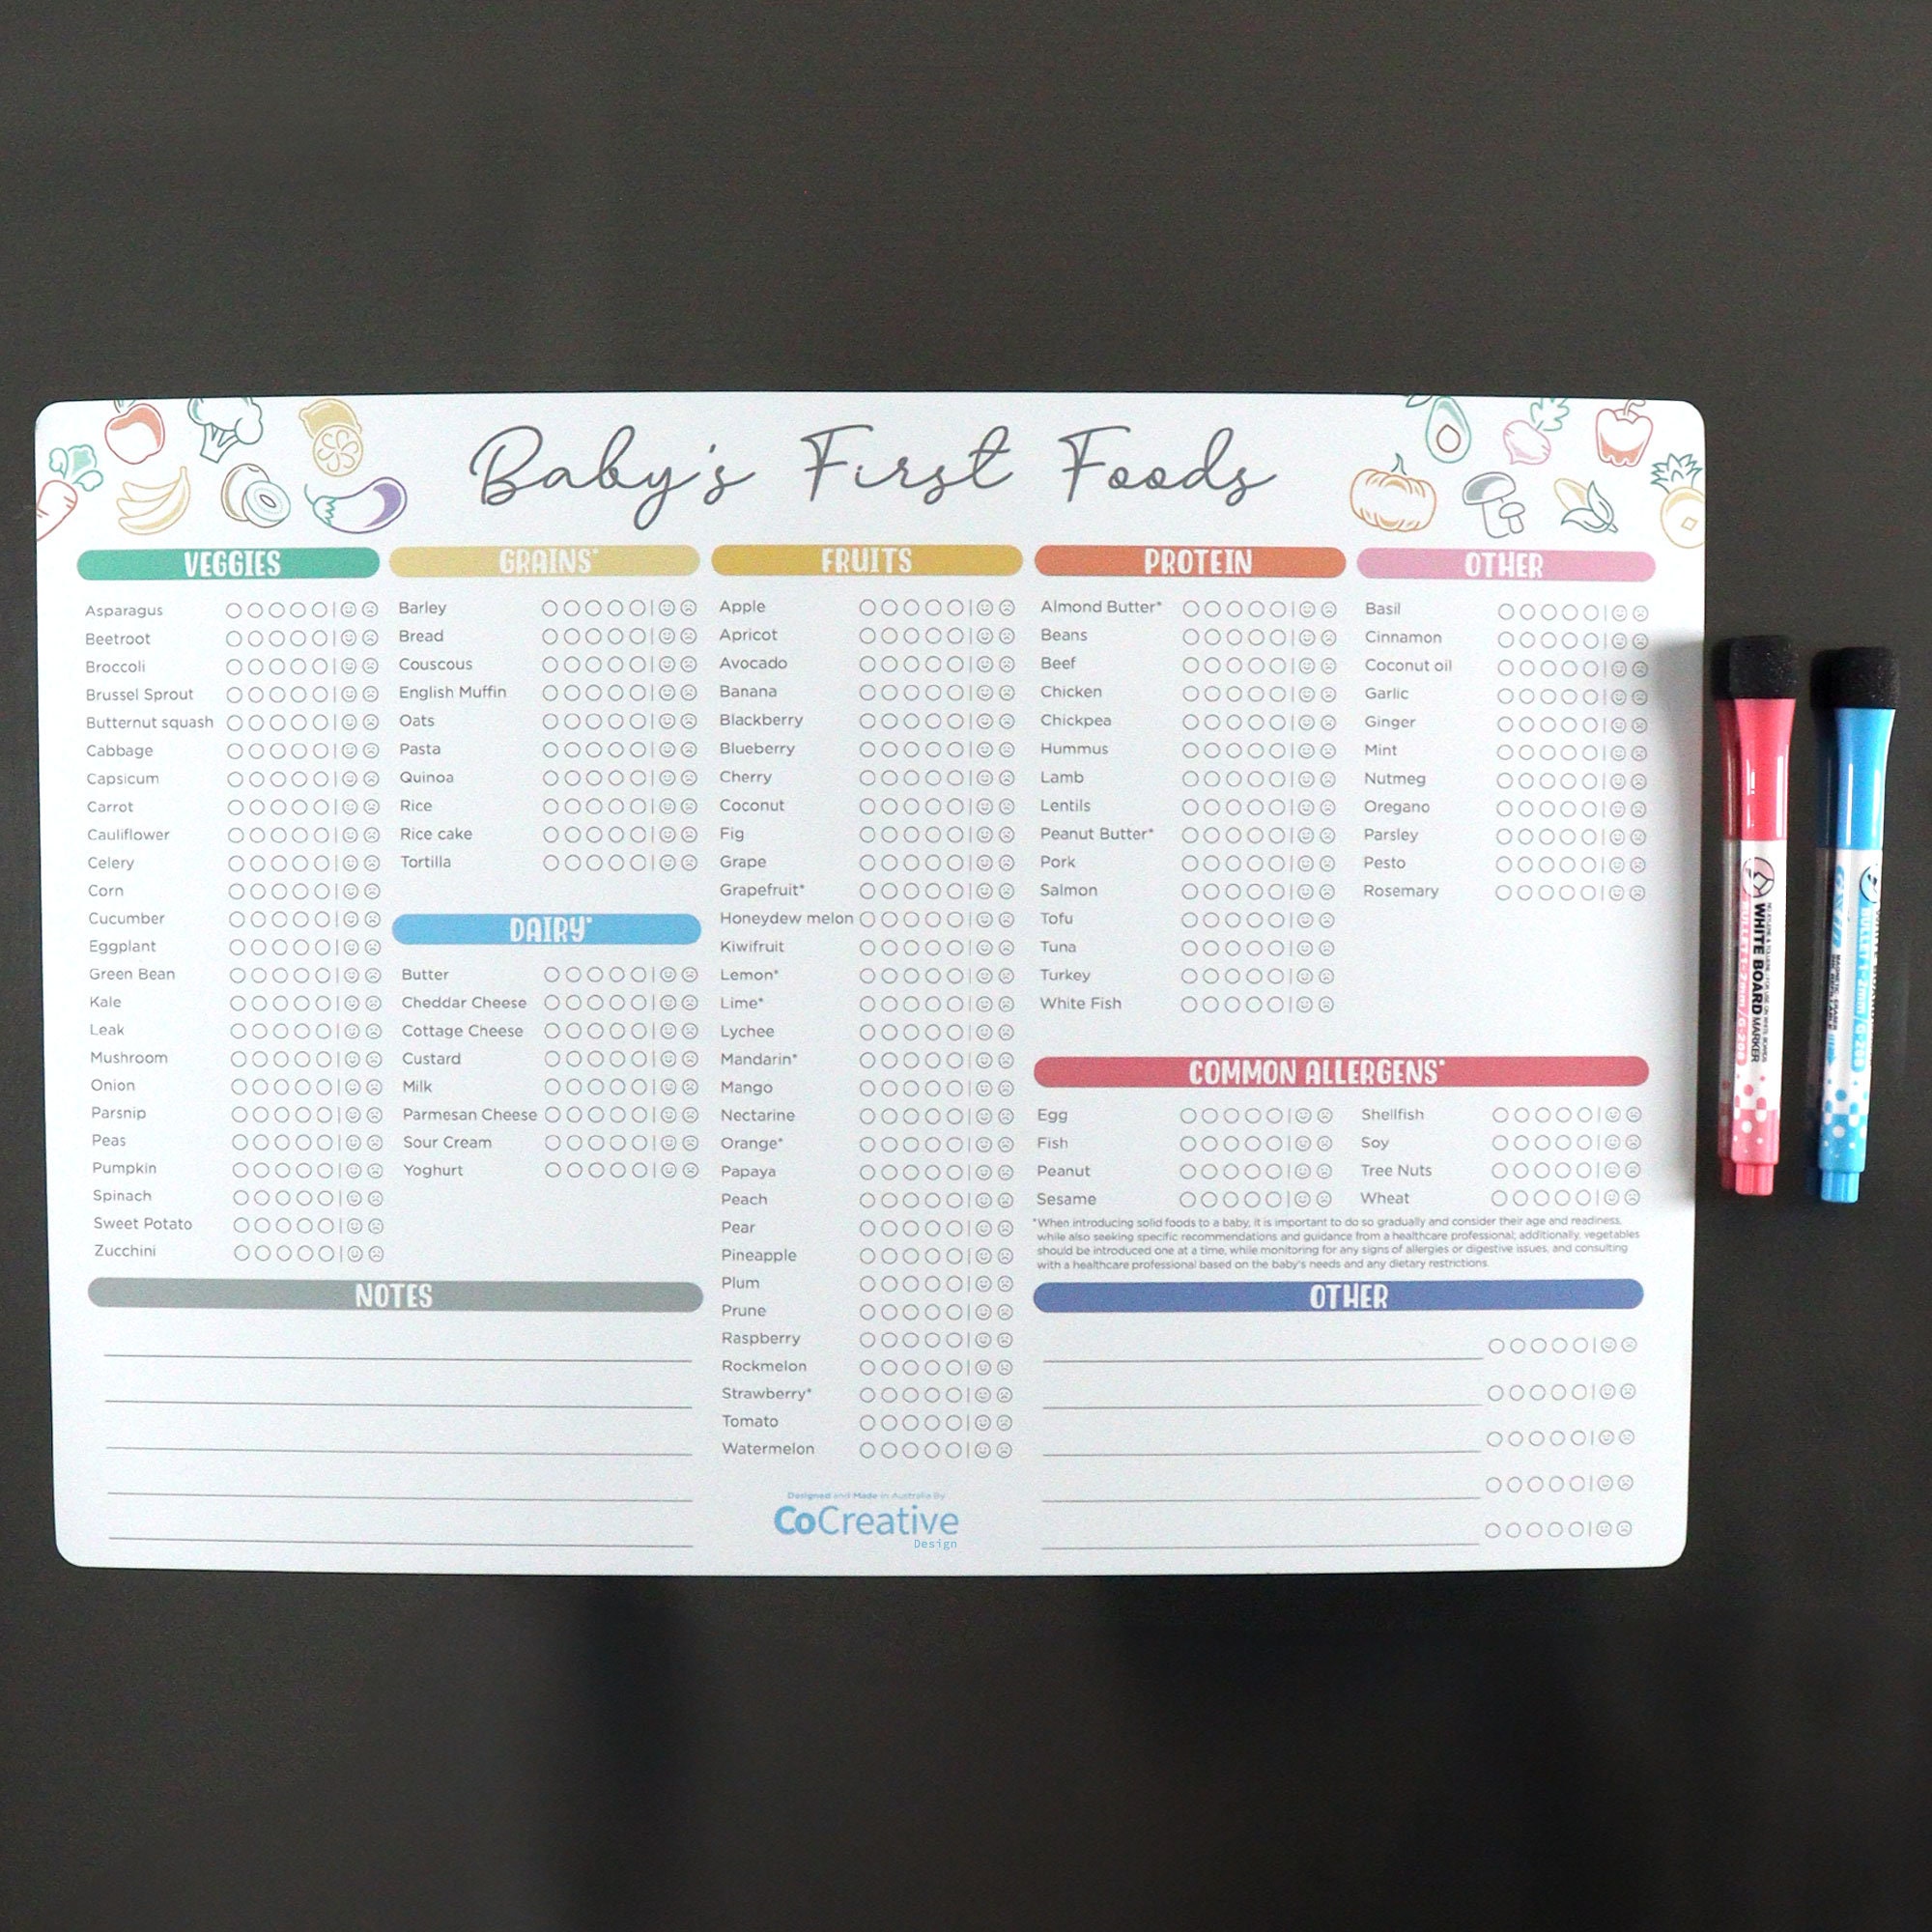 Baby's First Foods
VEGGIES
Asparagus
Beetroot
Broccoli
Brussel Sprout
Butternut squash
Cabbage
Capsicum
Carrot
Cauliflower
Celery
Corn
Cucumber
Eggplant
Green Bean
Kale
Leak
Mushroom
Onion
Parsnip
Peas
Pumpkin
Spinach
Sweet Potato
Zucchini
GRAINS*
Barley
Bread
Couscous
English Muffin
Oats
Pasta
Quinoa
Rice
Rice cake
Tortilla
DAIRY*
Butter
Cheddar Cheese
Cottage Cheese
Custard
Milk
Parmesan Cheese
Sour Cream
Yoghurt
NOTES
FRUITS
Apple
Apricot
Avocado
Banana
Blackberry
Blueberry
Cherry
Coconut
Fig
Grape
Grapefruit*
Honeydew melon
Kiwifruit
Lemon*
Lime*
Lychee
Mandarin*
Mango
Nectarine
Orange*
Papaya
Peach
Pear
Pineapple
Plum
Prune
Raspberry
Rockmelon
Strawberry*
Tomato
Watermelon
Designed and Made in Australia By
CoCreative
Design
PROTEIN
Almond Butter*
Beans
Beef
Chicken
Chickpea
Hummus
Lamb
Lentils
Peanut Butter*
Pork
Salmon
Tofu
Tuna
Turkey
White Fish
OTHER
Basil
Cinnamon
Coconut oil
Garlic
Ginger
Mint
Nutmeg
Oregano
Parsley
Pesto
Rosemary
COMMON ALLERGENS*
Egg
Fish
Peanut
Sesame
Shellfish
Soy
Tree Nuts
Wheat
*When introducing solid foods to a baby, it is important to do so gradually and consider their age and readiness,
while also seeking specific recommendations and guidance from a healthcare professional; additionally, vegetables
should be introduced one at a time, while monitoring for any signs of allergies or digestive issues, and consulting
with a healthcare professional based on the baby's needs and any dietary restrictions.
OTHER
WHITE BOARD MARKER
BULLET 1-2mm/G-208